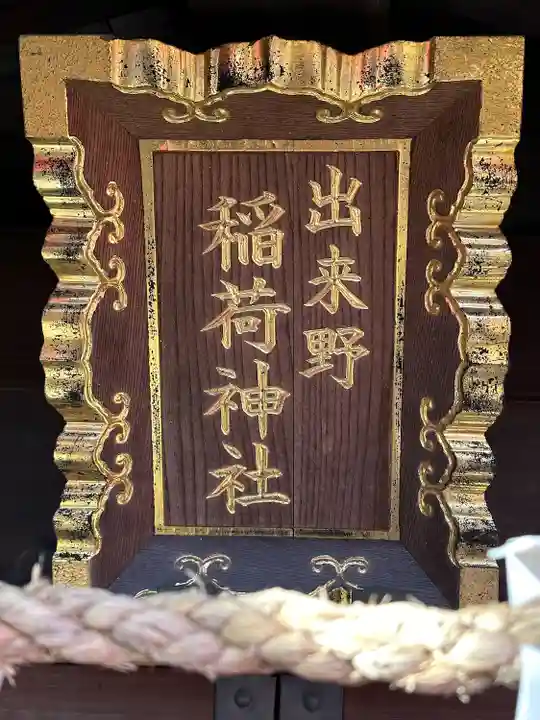 出来野
稲荷神社